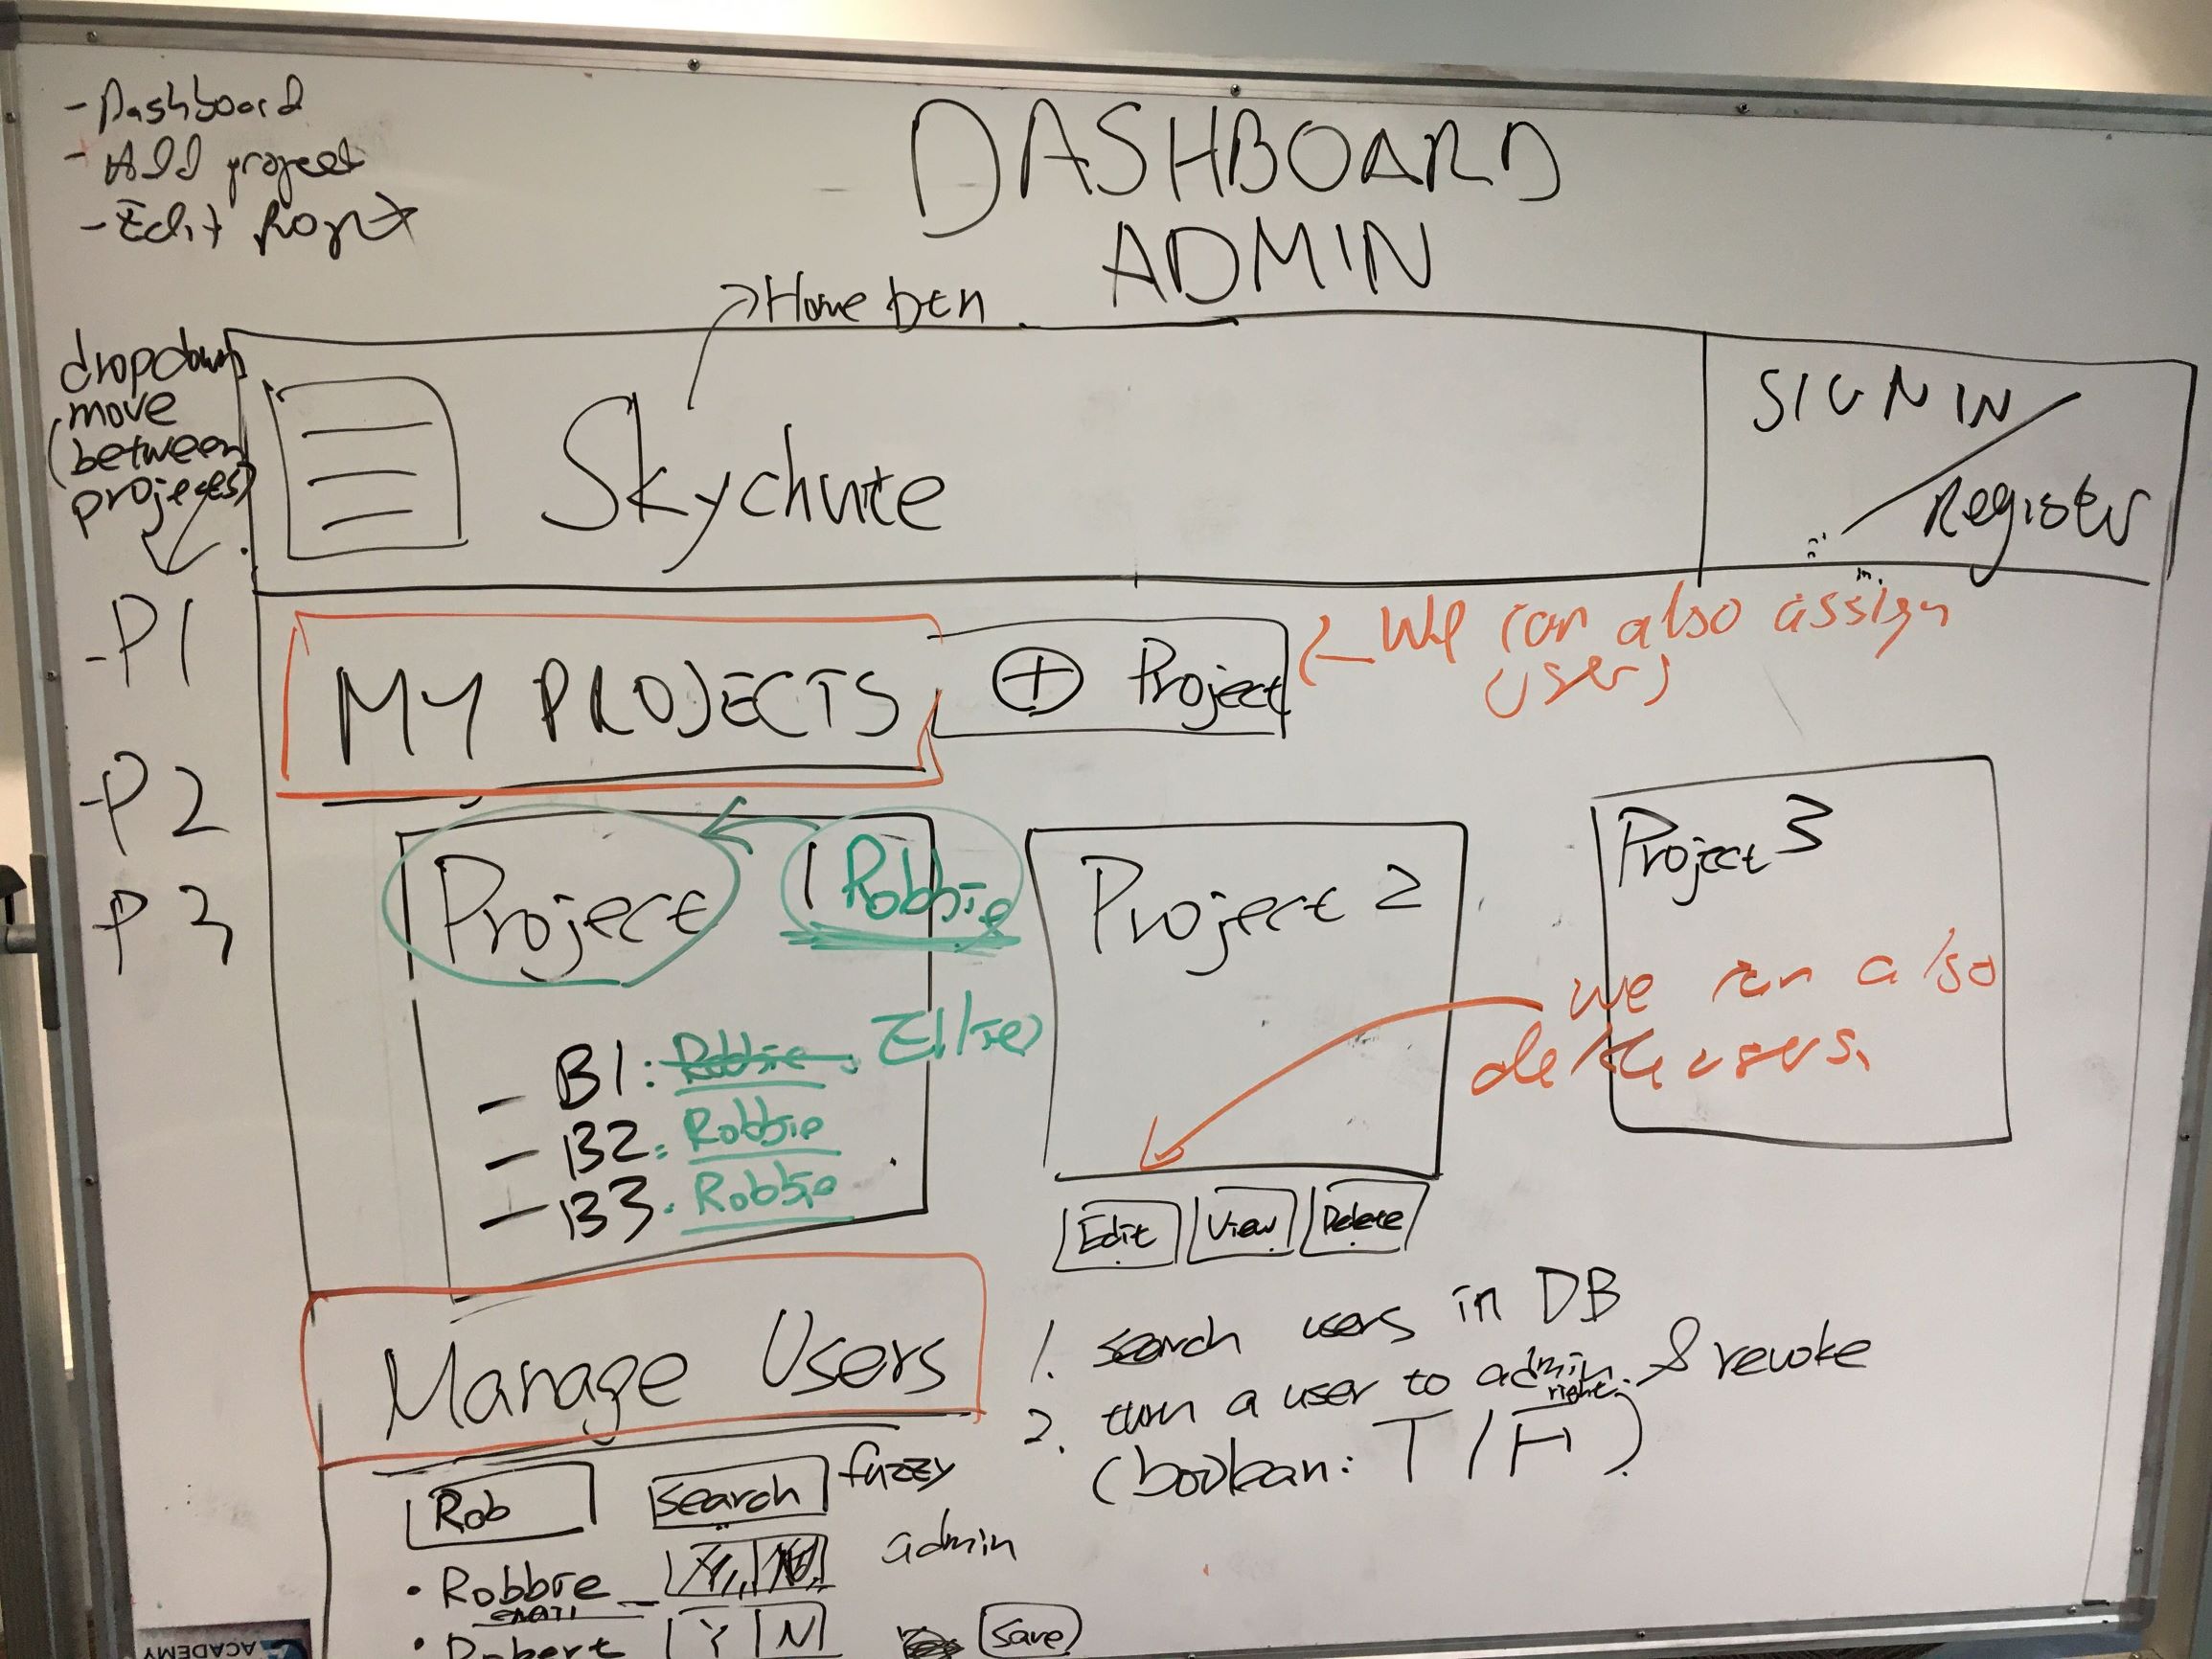 - Dashboard
- Add project
- Edit Project
DASHBOARD
ADMIN
Home btn
dropdown
move
(between
projects)
Skychute
SIGN IN
/
Register
-P1
-P2
-P3
MY PROJECTS
+ Project
We can also assign
users
Project 1 Robbie
- B1: Robbie. Ellie
- B2: Robbie
- B3. Robbie
Project 2
Project 3
we can also
delete users.
Edit
View
Delete
Manage Users
1. search users in DB
2. turn a user to admin right & revoke
(boolean: T/F)
Rob
search
fuzzy
• Robbie
email
admin
• Robert
Y N
Save
ACADEMY